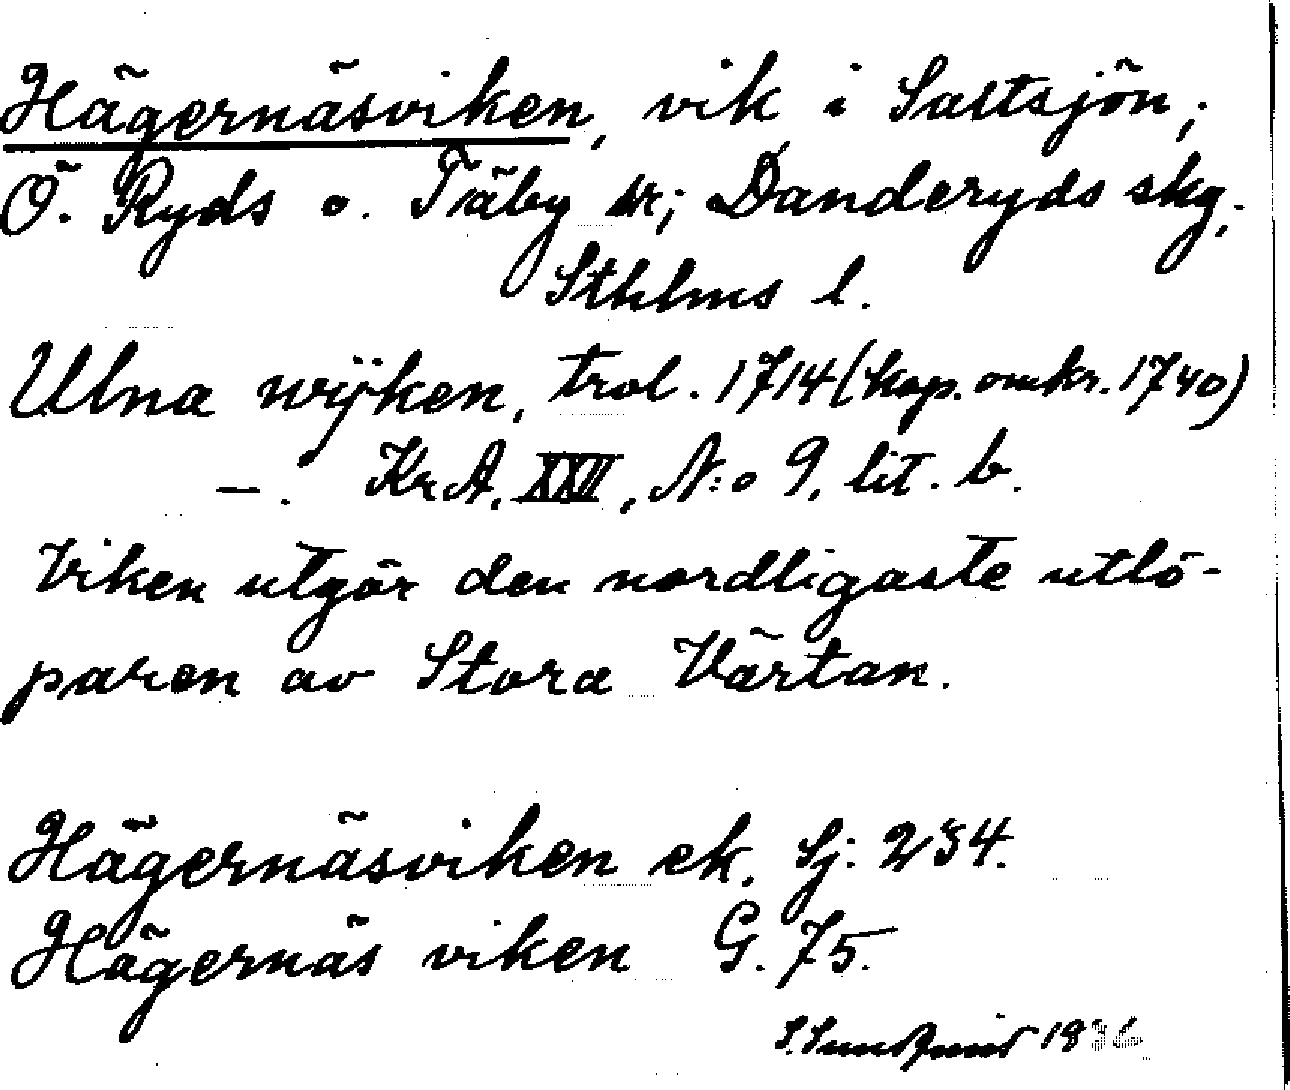 Hägernäsviken, vik i Saltsjön;
Ö. Ryds o. Täby sk; Danderyds skg,
Sthlms l.
Ulna wijken, trol. 1714 (kop. omkr. 1740)
—. KrA, XXII, N:o 9, lit. b.
Viken utgör den nordligaste utlö-
paren av Stora Värtan.
Hägernäsviken ek. Sj: 234.
Hägernäs viken G. 75.
S. Sundqvist 1936